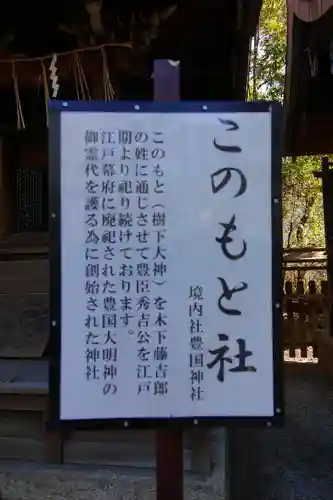 このもと社
境内社豊国神社
このもと（樹下大神）を木下藤吉郎
の姓に通じさせて豊臣秀吉公を江戸
期より祀り続けております。
江戸幕府に廃祀された豊国大明神の
御霊代を護る為に創始された神社